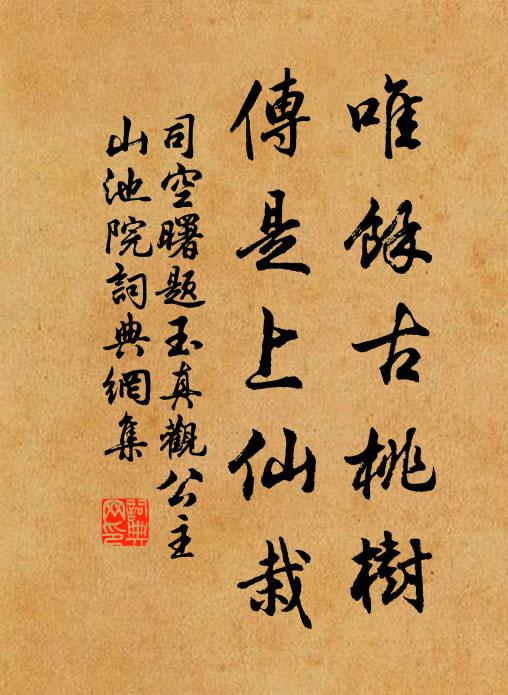 唯餘古桃樹
傳是上仙栽
司空曙題玉真觀公主
山池院詞典網集
詞典網印